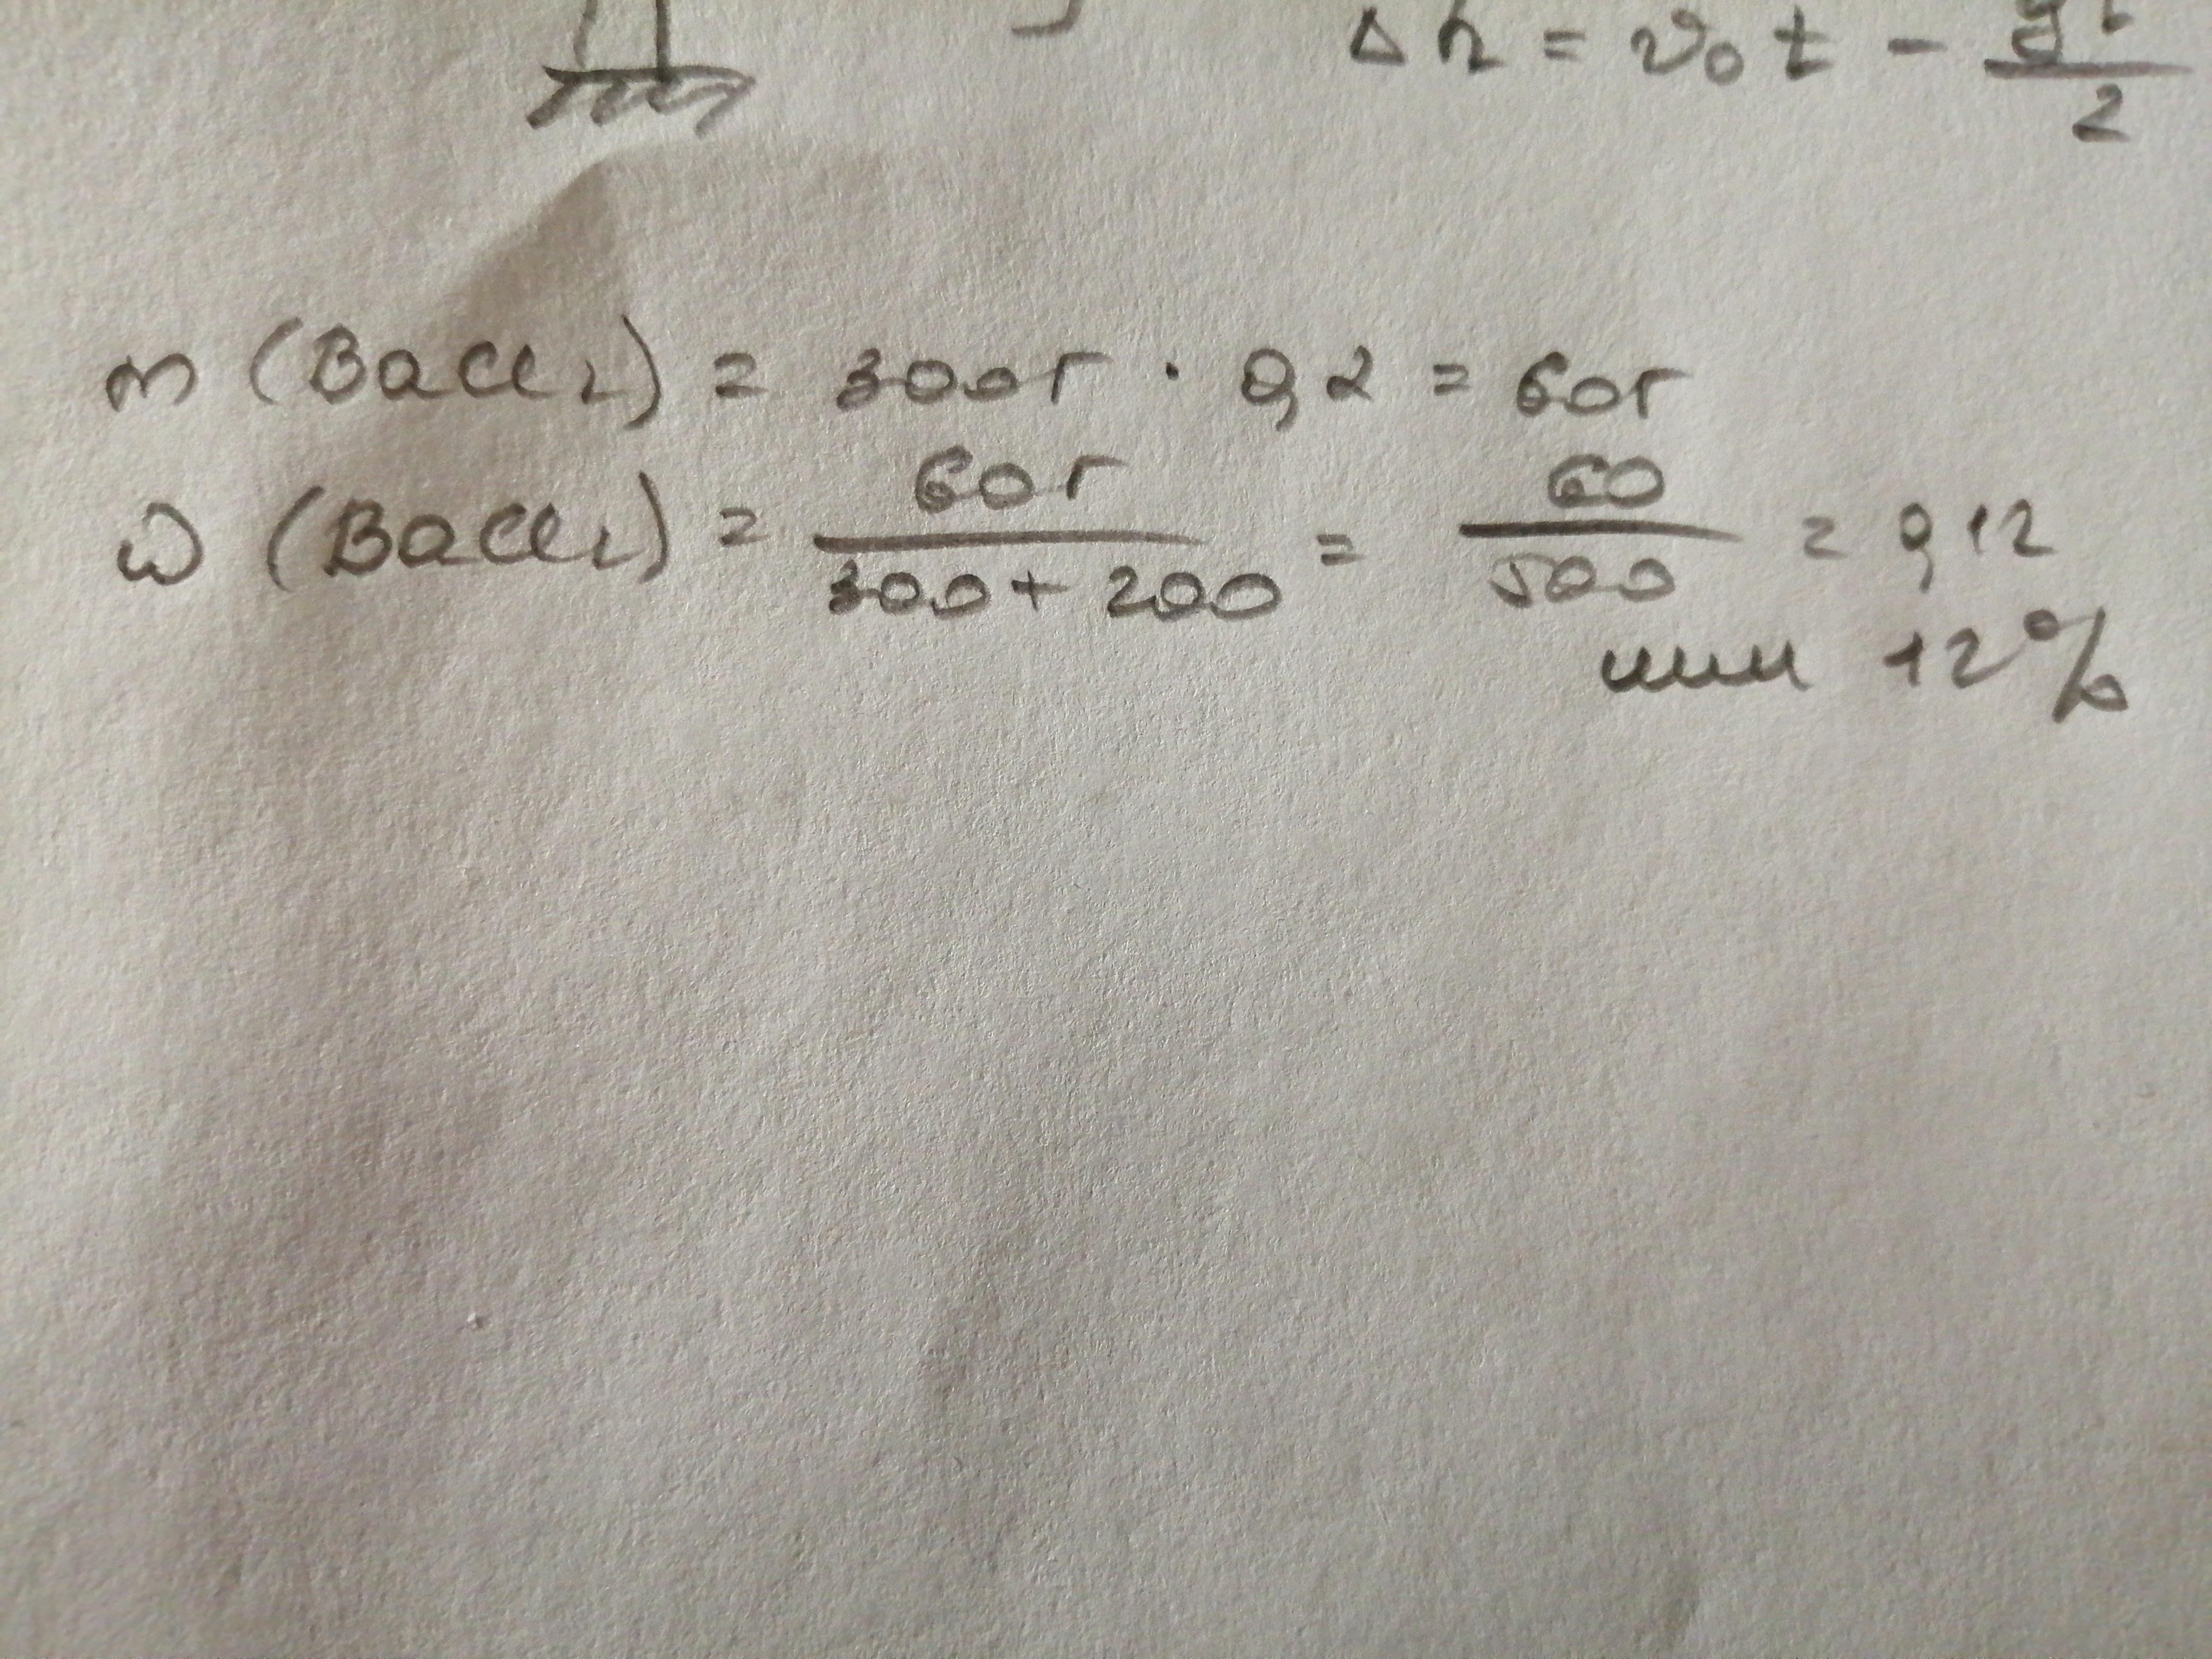 Δh = v₀t - gt/2
m (BaCl₂) = 300г · 0,2 = 60г
ω (BaCl₂) = 60г/300+200 = 60/500 = 0,12
или 12%